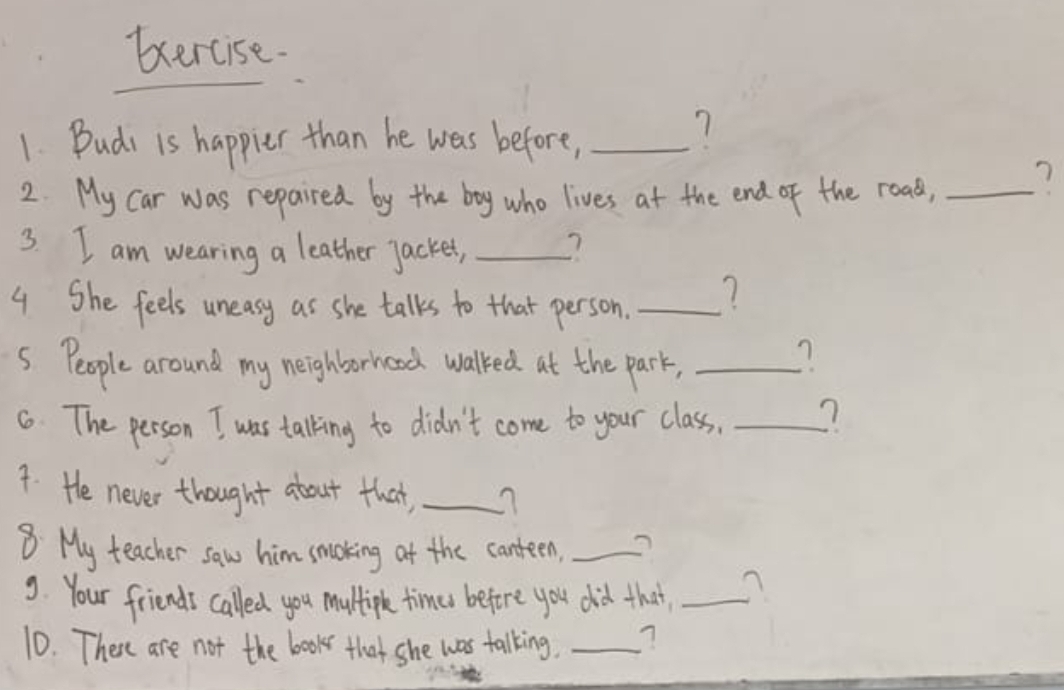 Exercise-
1. Budi is happier than he was before, ______?
2. My car was repaired by the boy who lives at the end of the road, ______?
3. I am wearing a leather jacket, ______?
4 She feels uneasy as she talks to that person. ______?
5 People around my neighborhood walked at the park, ______?
6. The person I was talking to didn't come to your class, ______?
7. He never thought about that, ______?
8 My teacher saw him smoking at the canteen, ______?
9. Your friends called you multiple times before you did that, ______?
10. These are not the books that she was talking. ______?